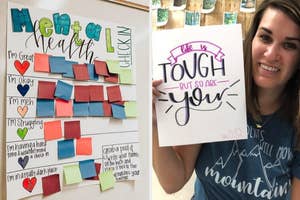 Mental
health
CHECK IN
I'm Great
I'm Okay
I'm meh
I'm Struggling
I'm having a hard
time & wouldn't
mind a check in
I'm in a really dark place
Life is
TOUGH
BUT SO ARE
you
mountains